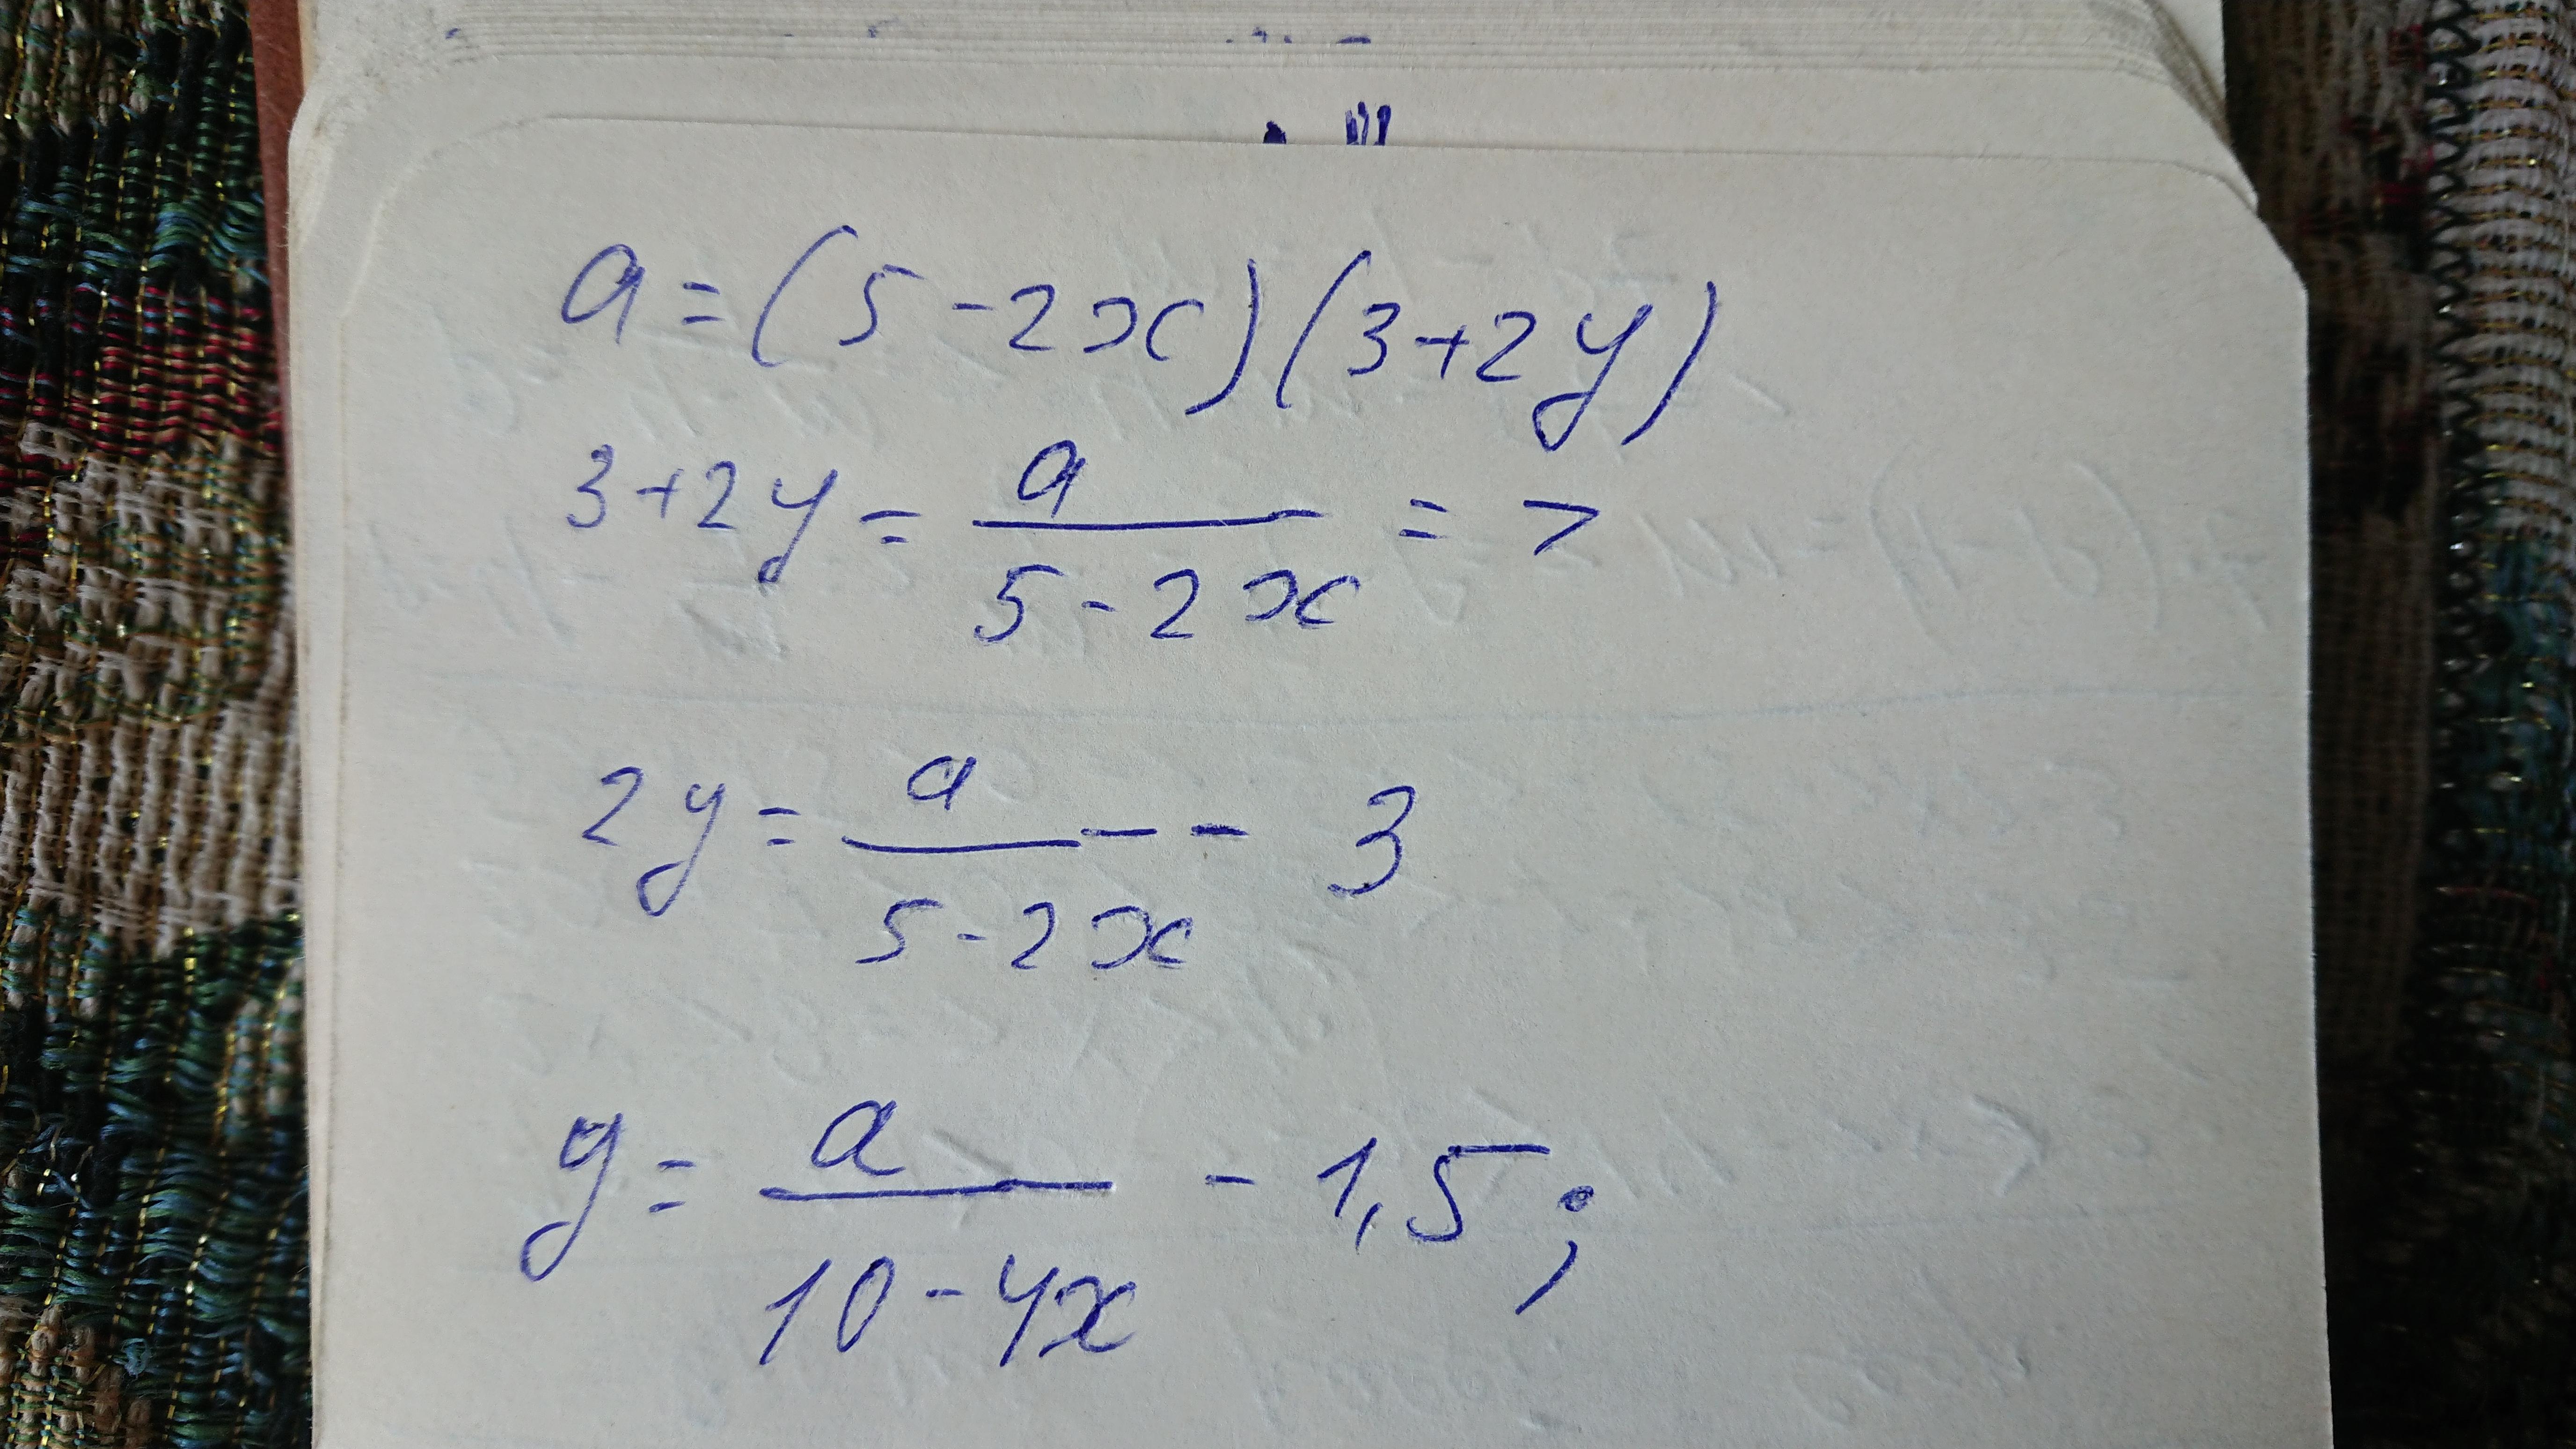 a = (5 - 2x)(3 + 2y)
3 + 2y = a / (5 - 2x) =>
2y = a / (5 - 2x) - 3
y = a / (10 - 4x) - 1,5;